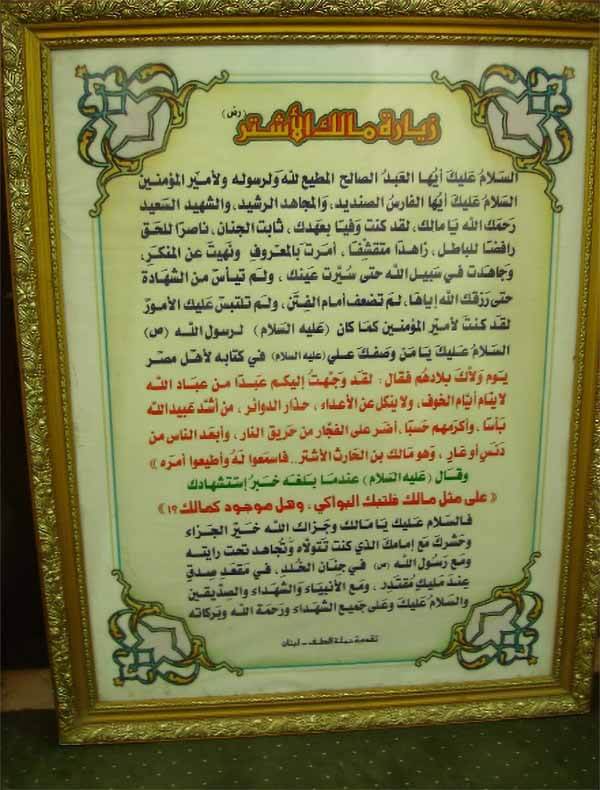 زيارة مالك الأشتر (رض)
السَلامُ عَليكَ أيُها العَبدُ الصالح المطيع لله وَلرسوله ولأميْر المؤمنين
السَلامُ عَليكَ أيُها الفارسُ الصنديد، وَالمجاهد الرشيد، والشهيد السَعيد
رَحمَك الله يَا مالك، لقد كنت وَفيًا بعَهدك، ثابت الجنان، ناصرًا للحَق
رافضًا للباطل، زاهدًا متقشفًا، أمرَت بالمعروف ونَهيتَ عن المنكر،
وَجاهدت في سَبيل الله حتى سُيّرت عَينك، ولم تيأسْ من الشهَادة
حتى رَزَقك الله إياها، لمْ تضعف أمام الفِتَن، ولم تلتبسْ عَليك الأمورْ
لقد كنتَ لأميْر المؤمنين كمَا كان (عليه السَلام) لرسول الله (ص)
السَلامُ عَليكَ يَا مَن وَصفك عَلي (عليه السلام) في كتابه لأهْل مصر
يوم وَلاّك بلادهُم فقال: لقد وَجّهْتُ إليكم عَبدًا منْ عبَاد الله
لا ينام أيّام الخوف، ولا يَنكل عن الأعداء، حذار الدوائر، من أشَدّ عَبيد الله
بَأسًا، وأكرَمهم حَسَبًا، أضَر على الفجّار من حَريق النار، وأبعَد الناس من
دَنَس أو عَار، وهوَ مَالك بن الحَارث الأشتر.. فاسمَعوا لهُ وأطيعُوا أمرَه »
وقال (عليه السَلام) عندمَا بَلغه خبَرُ إستشهادك
« على مثل مَالك فلتبك البواكي، وهل موجود كمالك ؟! »
فالسَلام عَليك يَا مَالك وجَزاك الله خيْر الجزاء
وحَشرك مَع إمامك الذي كنت تَتولاه وَتُجاهد تحت رايته
ومع رَسُول الله (ص) في جنان الخلد، في مَقعَد صدق
عندَ مَليك مُقتدر، ومَع الأنبيَاء وَالشهَداء والصِدّيقين
والسَلامُ عَليكَ وعلى جَميع الشهَداء ورَحمَة الله وبَركاته
تقدمة حملة الطف - لبنان